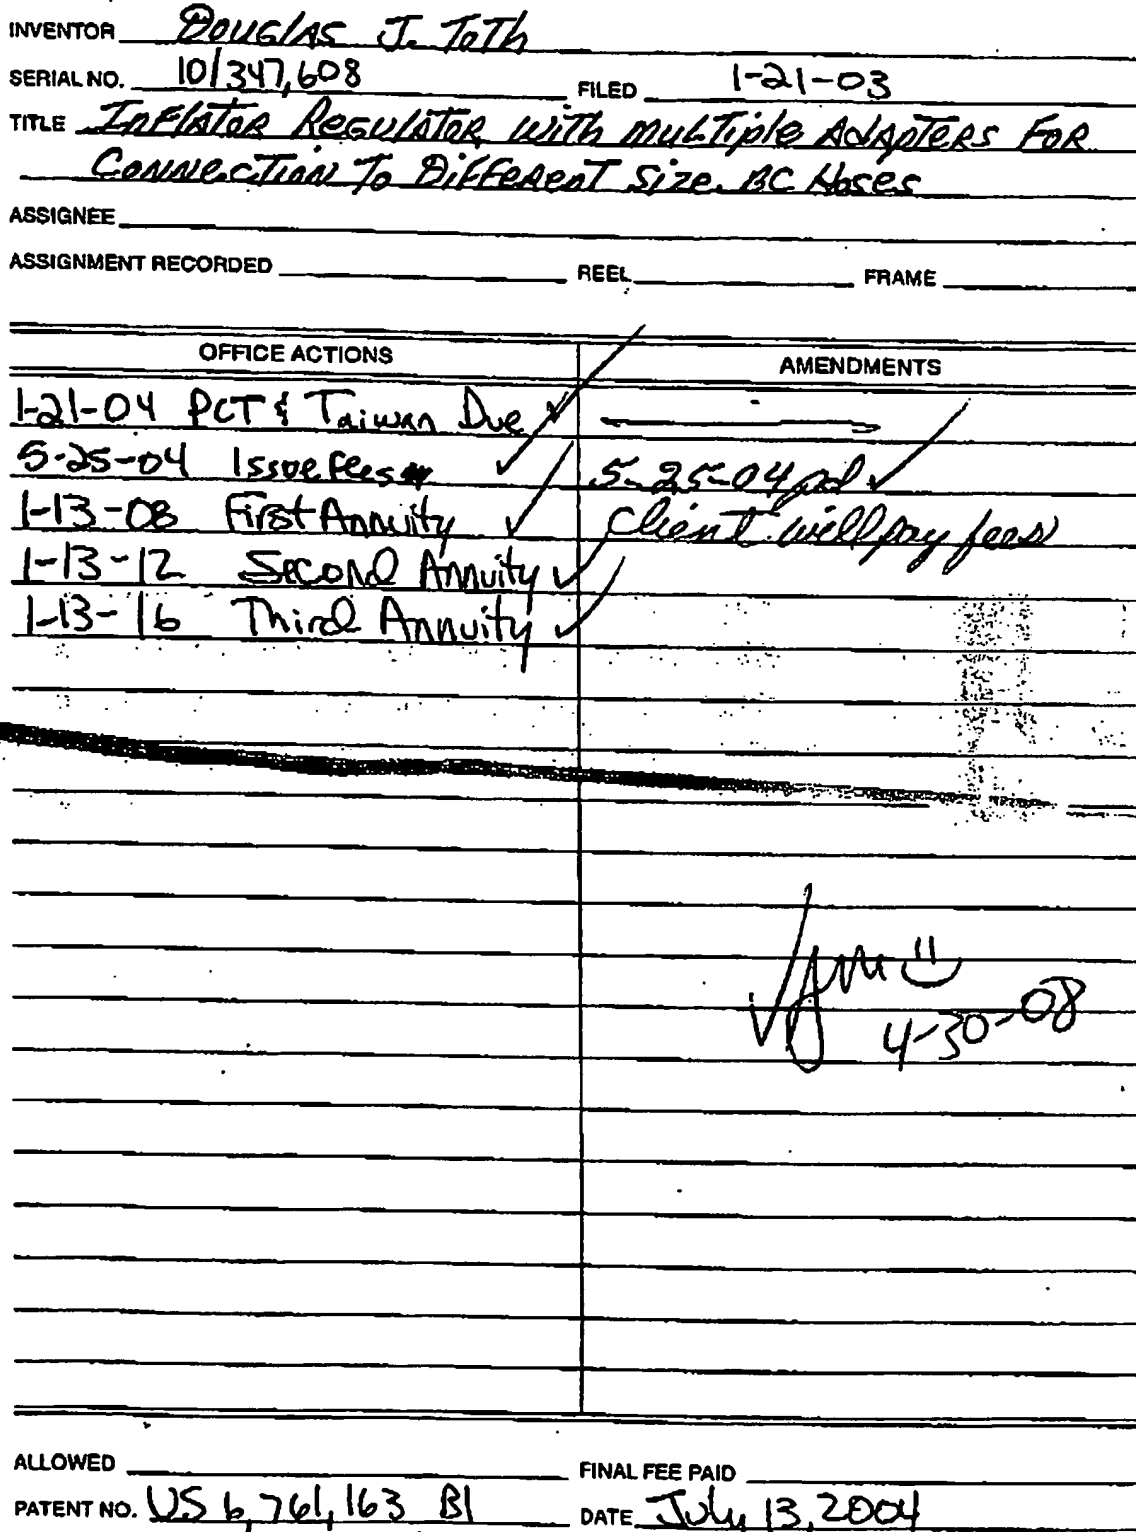 INVENTOR Douglas J. Toth
SERIAL NO. 10/347,608 FILED 1-21-03
TITLE Inflator Regulator with multiple Adapters For
Connection To Different Size BC Hoses
ASSIGNEE
ASSIGNMENT RECORDED REEL FRAME
OFFICE ACTIONS AMENDMENTS
1-21-04 PCT & Taiwan Due
5-25-04 Issue fees 5-25-04 pd
1-13-08 First Annuity Client will pay fees
1-13-12 Second Annuity
1-13-16 Third Annuity
4-30-08
ALLOWED FINAL FEE PAID
PATENT NO. US 6,761,163 B1 DATE July 13, 2004